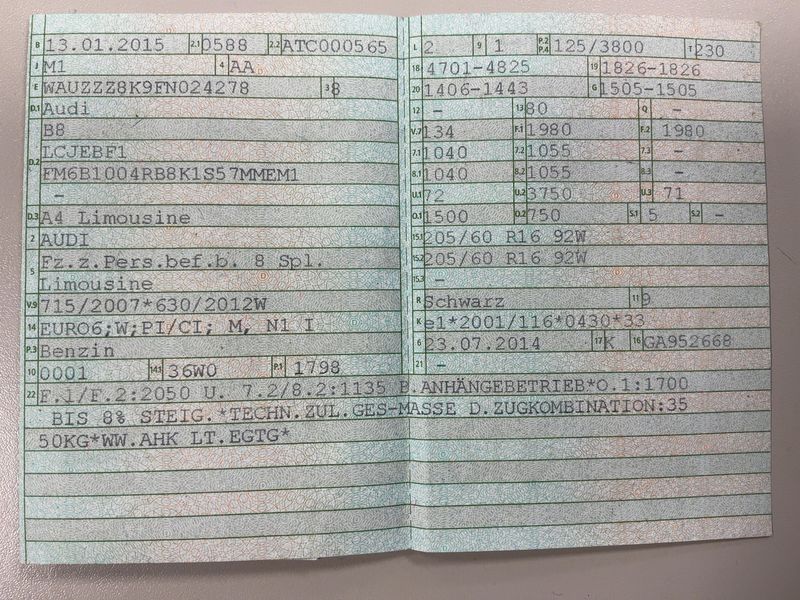 B 13.01.2015 2.1 0588 2.2 ATC000565
J M1 4 AA
E WAUZZZ8K9FN024278 3 8
D.1 Audi
B8
D.2 LCJEBF1
FM6B1004RB8K1S57MMEM1
–
D.3 A4 Limousine
2 AUDI
5 Fz.z.Pers.bef.b. 8 Spl.
Limousine
V.9 715/2007*630/2012W
14 EURO6;W;PI/CI; M, N1 I
P.3 Benzin
10 0001 14.1 36W0 P.1 1798
L 2 9 1 P.2 P.4 125/3800 T 230
18 4701-4825 19 1826-1826
20 1406-1443 G 1505-1505
12 – 13 80 Q –
V.7 134 F.1 1980 F.2 1980
7.1 1040 7.2 1055 7.3 –
8.1 1040 8.2 1055 8.3 –
U.1 72 U.2 3750 U.3 71
O.1 1500 O.2 750 S.1 5 S.2 –
15.1 205/60 R16 92W
15.2 205/60 R16 92W
15.3 –
R Schwarz 11 9
K e1*2001/116*0430*33
6 23.07.2014 17 K 16 GA952668
21 –
22 F.1/F.2:2050 U. 7.2/8.2:1135 B.ANHÄNGEBETRIEB*O.1:1700
BIS 8% STEIG.*TECHN.ZUL.GES-MASSE D.ZUGKOMBINATION:35
50KG*WW.AHK LT.EGTG*